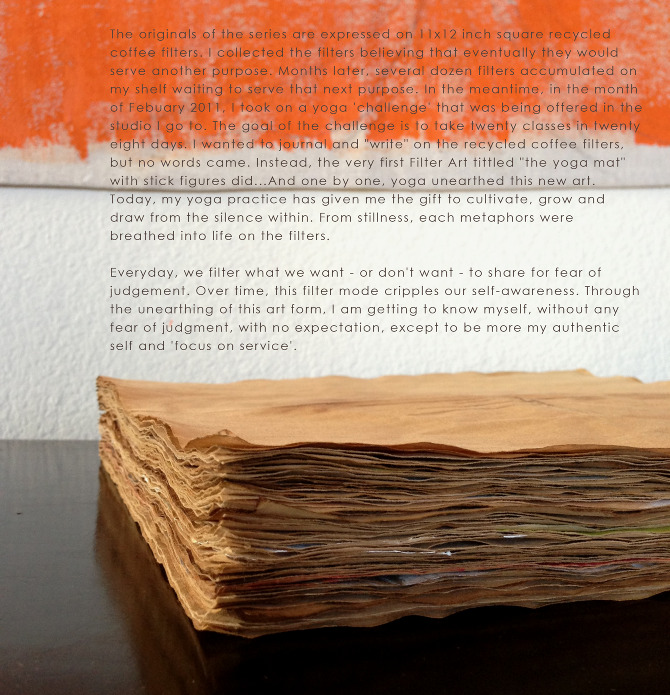 The originals of the series are expressed on 11x12 inch square recycled
coffee filters. I collected the filters believing that eventually they would
serve another purpose. Months later, several dozen filters accumulated on
my shelf waiting to serve that next purpose. In the meantime, in the month
of Febuary 2011, I took on a yoga 'challenge' that was being offered in the
studio I go to. The goal of the challenge is to take twenty classes in twenty
eight days. I wanted to journal and "write" on the recycled coffee filters,
but no words came. Instead, the very first Filter Art tittled "the yoga mat"
with stick figures did...And one by one, yoga unearthed this new art.
Today, my yoga practice has given me the gift to cultivate, grow and
draw from the silence within. From stillness, each metaphors were
breathed into life on the filters.
Everyday, we filter what we want - or don't want - to share for fear of
judgement. Over time, this filter mode cripples our self-awareness. Through
the unearthing of this art form, I am getting to know myself, without any
fear of judgment, with no expectation, except to be more my authentic
self and 'focus on service'.